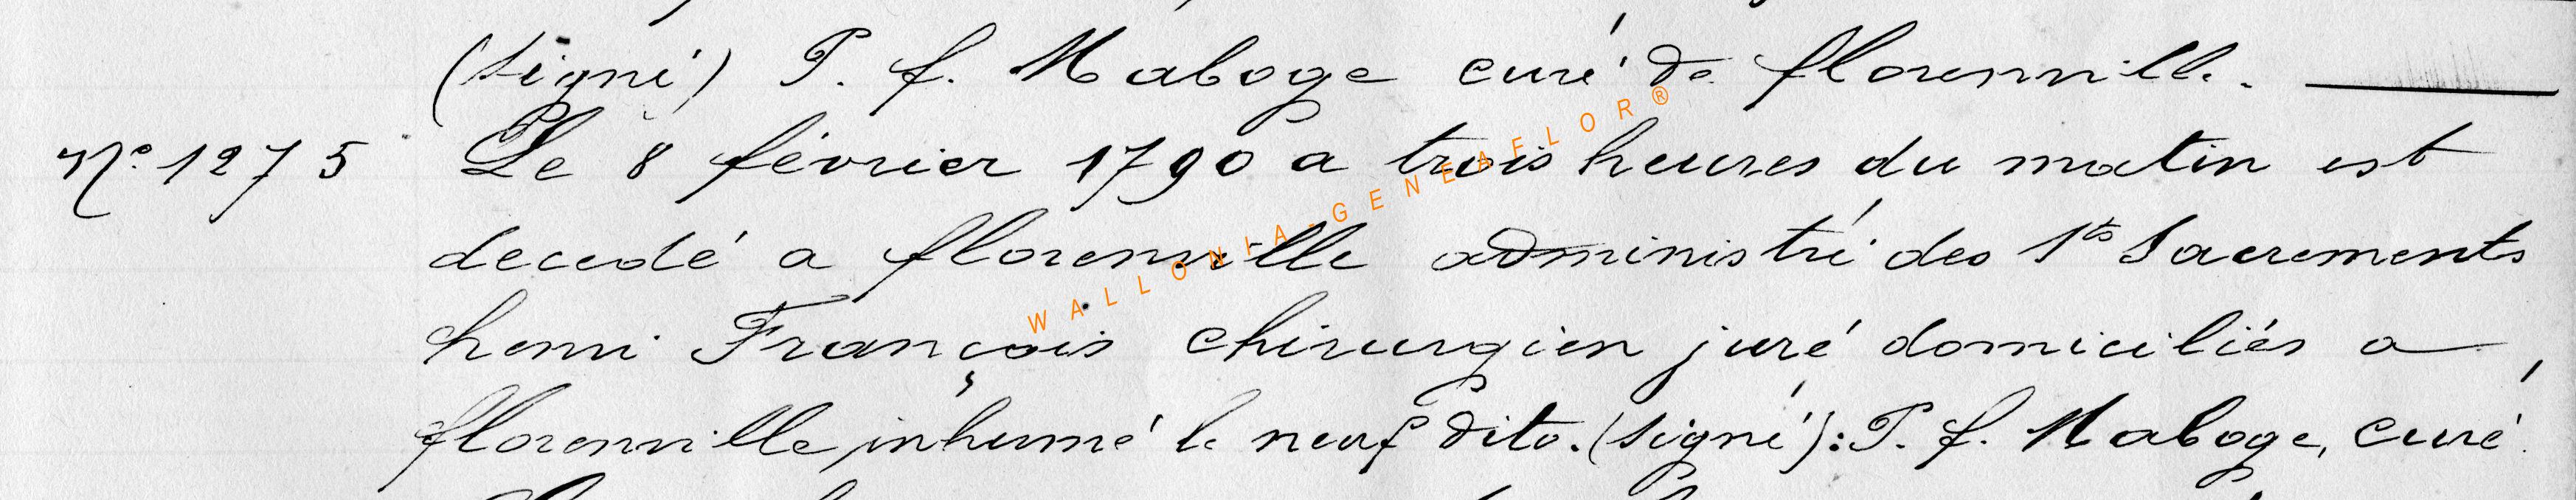 (signé) P. f. Maboge curé de florenville.
N.° 1275 Le 8 février 1790 a trois heures du matin est
decedé a florenville administré des Sts Sacrements
henri François chirurgien juré domiciliés a
florenville inhumé le neuf dito. (signé): P. f. Maboge, curé
WALLONIA-GENEAFLOR®